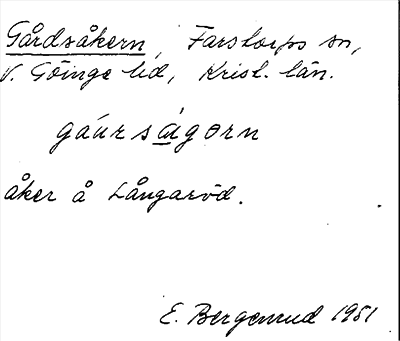 Gårdsåkern, Farstorps sn,
V. Göinge hd, Krist. län.
gáursá̱gorn
åker å Långaröd.
E. Bergenrud 1951